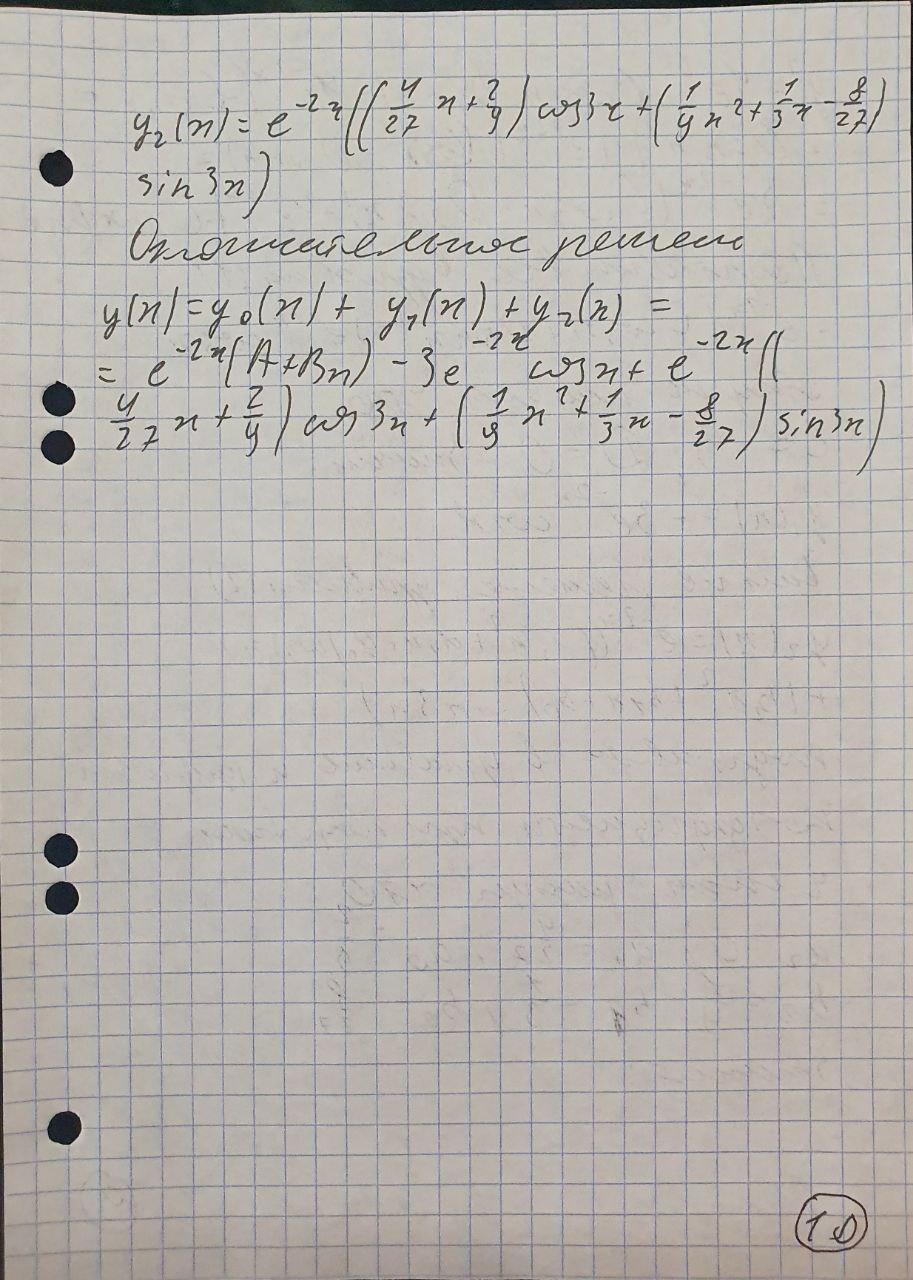 y₂(x) = e^{-2x}((4/27 x + 2/9) cos3x + (1/9 x² + 1/3 x - 8/27)
sin3x)
Окончательное решен
y(x) = y₀(x) + y₁(x) + y₂(x) =
= e^{-2x}(A+Bx) - 3e^{-2x} cosx + e^{-2x}((
4/27 x + 2/9) cos3x + (1/9 x² + 1/3 x - 8/27) sin3x)
10